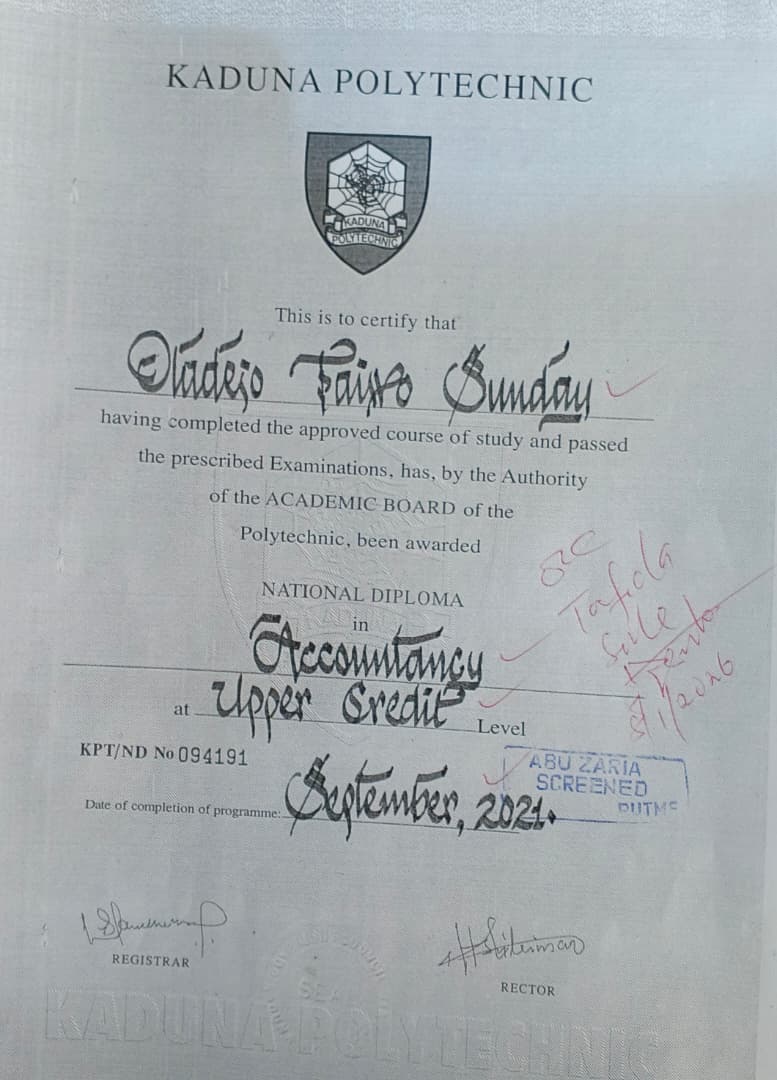 KADUNA POLYTECHNIC
KADUNA
POLYTECHNIC
This is to certify that
Oladejo Taiwo Sunday
having completed the approved course of study and passed
the prescribed Examinations, has, by the Authority
of the ACADEMIC BOARD of the
Polytechnic, been awarded
NATIONAL DIPLOMA
in
Accountancy
at Upper Credit Level
KPT/ND No 094191
Date of completion of programme: September, 2021.
Tafida
Sule
8/1/2026
ABU ZARIA
SCREENED
REGISTRAR
RECTOR
KADUNA POLYTECHNIC